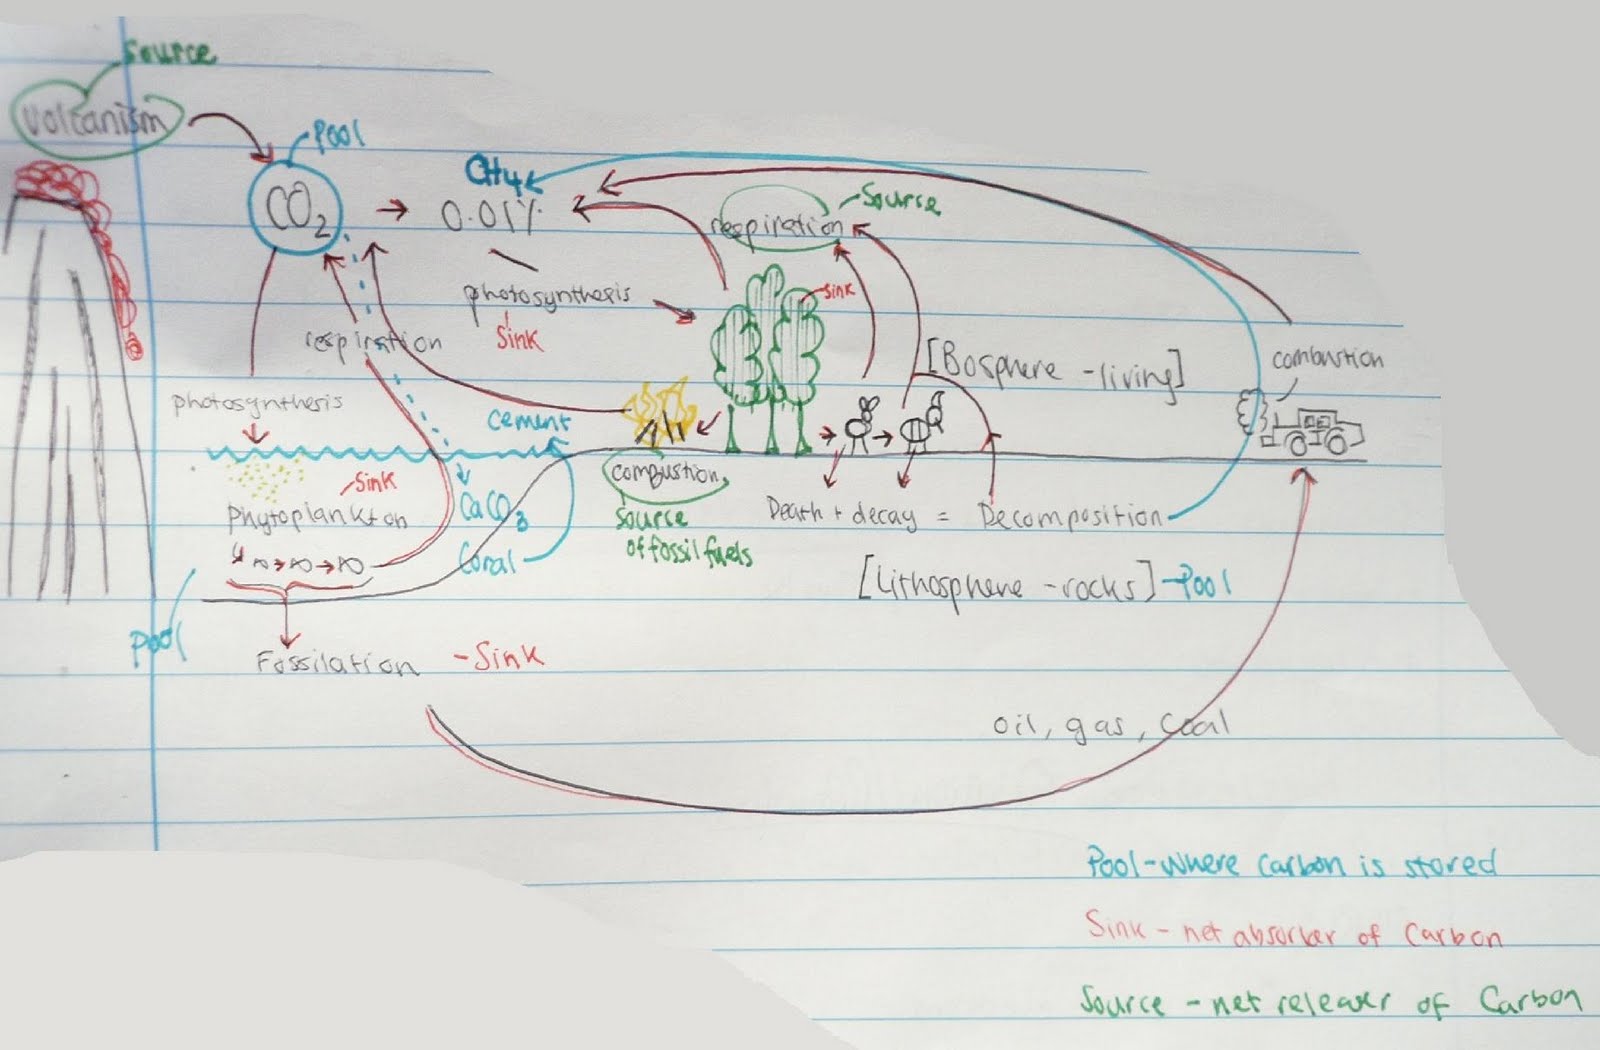 Source
Volcanism
Pool
CH4
CO2
0.01%
respiration
Source
photosynthesis
Sink
sink
respiration
[Bosphere - living]
combustion
photosynthesis
cement
Sink
combustion
Phytoplankton
CaCO3
source
of fossil fuels
Death + decay = Decomposition
Coral
[Lithosphere - rocks] - Pool
Pool
Fossilation - Sink
oil, gas, coal
Pool - where carbon is stored
Sink - net absorber of Carbon
Source - net releaser of Carbon